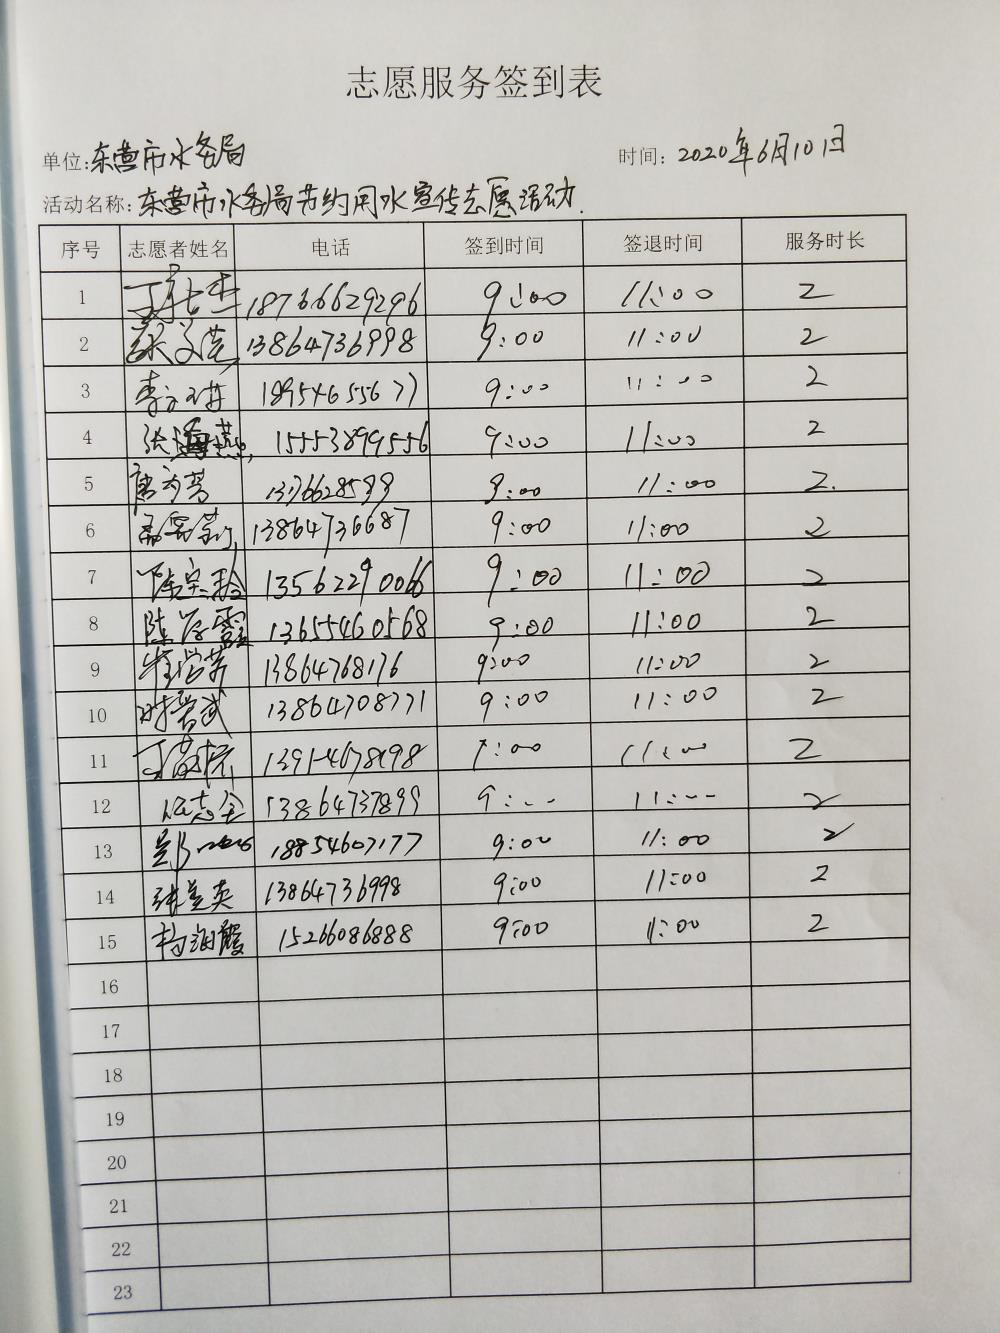 志愿服务签到表
单位:东营市水务局 时间:2020年6月10日
活动名称:东营市水务局节约用水宣传志愿活动.
序号 志愿者姓名 电话 签到时间 签退时间 服务时长
1 18766629296 9:00 11:00 2
2 13864736998 9:00 11:00 2
3 18954655677 9:00 11:00 2
4 张海燕, 15553899556 9:00 11:00 2
5 9:00 11:00 2.
6 13864736687 9:00 11:00 2
7 13562290066 9:00 11:00 2
8 13655460568 9:00 11:00 2
9 13864768176 9:00 11:00 2
10 13864708771 9:00 11:00 2
11 9:00 11:00 2
12 13864737899 9:00 11:00 2
13 18854607177 9:00 11:00 2
14 13864736998 9:00 11:00 2
15 15266086888 9:00 11:00 2
16
17
18
19
20
21
22
23